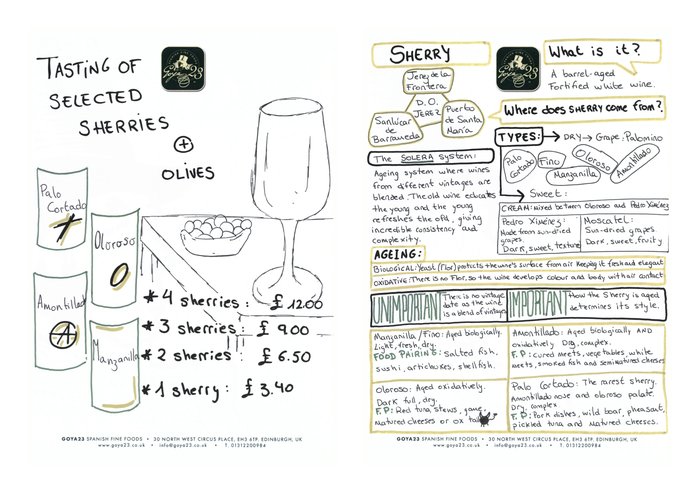 TASTING OF
SELECTED
SHERRIES
+
OLIVES
Goya 23
Palo
Cortado
Oloroso
O
Amontillado
A
Manzanilla
* 4 sherries: £ 12.00
* 3 sherries: £ 9.00
* 2 sherries: £ 6.50
* 1 sherry: £ 3.40
GOYA23 SPANISH FINE FOODS • 30 NORTH WEST CIRCUS PLACE, EH3 6TP, EDINBURGH, UK
www.goya23.co.uk • info@goya23.co.uk • T. 01312200984
SHERRY
Jerez de la
Frontera
D.O.
JEREZ
Sanlúcar
de
Barrameda
Puerto
de Santa
María
Goya 23
What is it?
A barrel-aged
Fortified white wine.
Where does SHERRY come from?
TYPES: → DRY → Grape: Palomino
Palo
Cortado
Fino
Manzanilla
Oloroso
Amontillado
→ Sweet:
CREAM: mixed between Oloroso and Pedro Ximénez
Pedro Ximénez:
Made from sun-dried
grapes.
Dark, sweet, texture
Moscatel:
Sun-dried grapes.
Dark, sweet, fruity
The SOLERA system:
Ageing system where wines
from different vintages are
blended. The old wine educates
the young and the young
refreshes the old, giving
incredible consistency and
complexity.
AGEING:
BIOLOGICAL: Yeast (Flor) protects the wine's surface from air keeping it fresh and elegant
OXIDATIVE: There is no Flor, so the wine develops colour and body with air contact
UNIMPORTANT
There is no vintage
date as the wine
is a blend of vintages
IMPORTANT
How the Sherry is aged
determines its style.
Manzanilla/Fino: Aged biologically.
Light, fresh, dry.
FOOD PAIRING: Salted fish,
sushi, artichokes, shellfish.
Amontillado: Aged biologically AND
oxidatively. Dry, complex.
F.P: cured meets, vegetables, white
meets, smoked fish and semimatured cheeses
Oloroso: Aged oxidatively.
Dark full, dry.
F.P: Red tuna, stews, game,
Matured cheeses or ox tail
Palo Cortado: The rarest sherry.
Amontillado nose and oloroso palate.
Dry, complex
F.P: Pork dishes, wild boar, pheasant,
pickled tuna and Matured cheeses.
GOYA23 SPANISH FINE FOODS • 30 NORTH WEST CIRCUS PLACE, EH3 6TP, EDINBURGH, UK
www.goya23.co.uk • info@goya23.co.uk • T. 01312200984